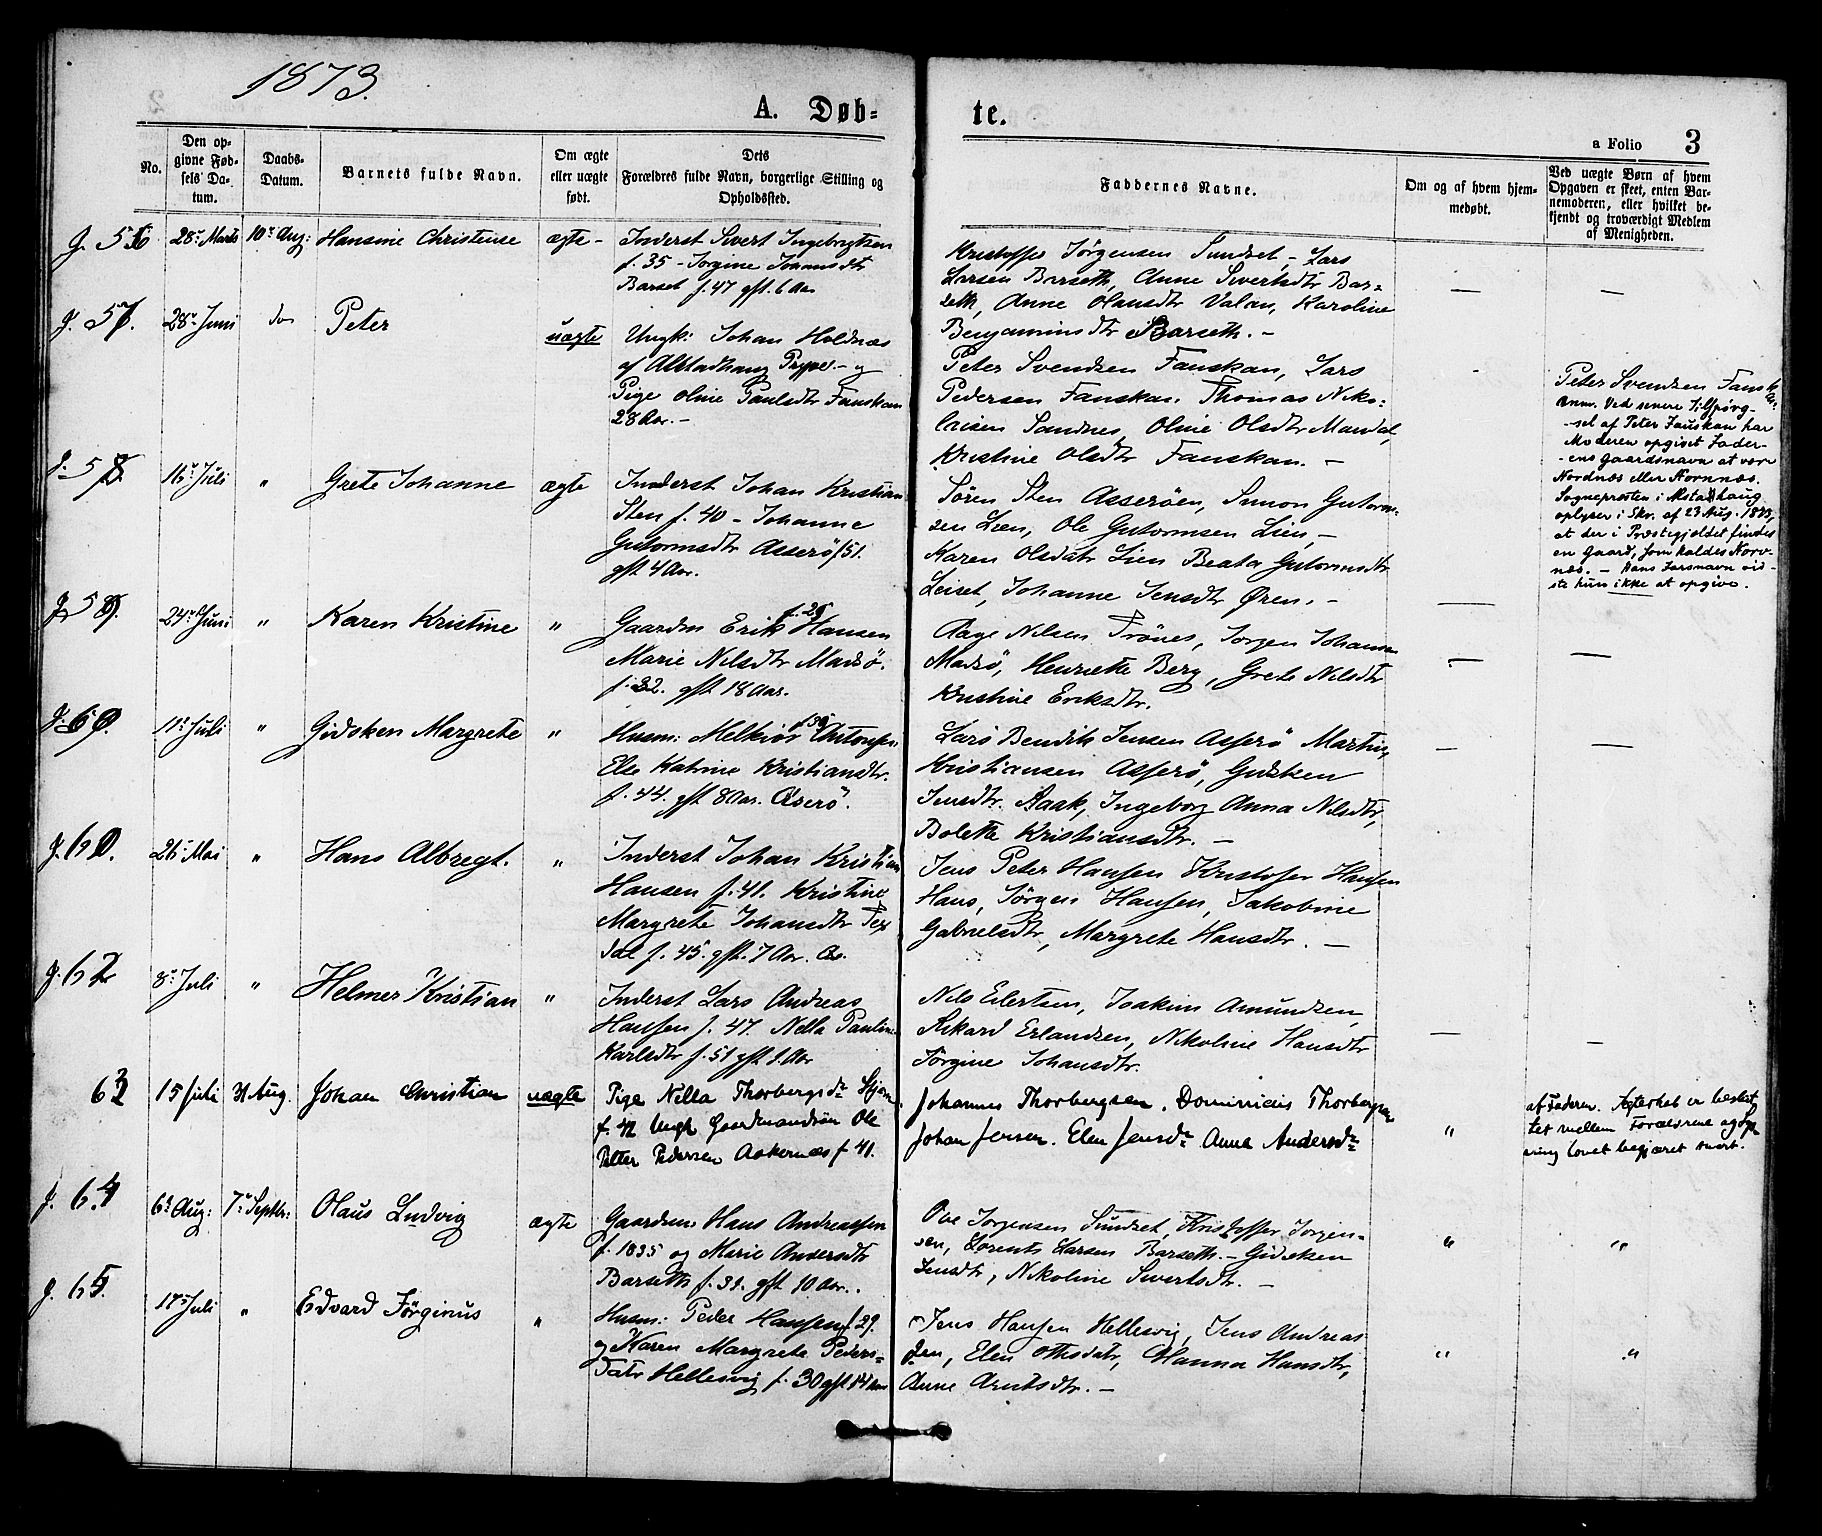 1873.
A. Døb-
te.
a Folio 3
No.
Den op-
givne Fød-
sels Da-
tum.
Daabs-
Datum.
Barnets fulde Navn.
Om ægte
eller uægte
født.
Dets
Forældres fulde Navn, borgerlige Stilling og
Opholdssted.
Faddernes Navne.
Om og af hvem hjem-
medøbt.
Ved uægte Børn af hvem
Opgaven er skeet, enten Bar-
nemoderen, eller hvilket be-
kjendt og troværdigt Medlem
af Menigheden.
g. 56 28de Marts 10de Aug: Hansine Christense ægte - Inderst Sivert Ingebrigtsen
f. 35 - Jorgine Johansdtr
Barset f. 47 gft. 6 Aar
Kristoffer Jørgensen Sundset, Lars
Larsen Barseth, Anne Sivertsdtr Bar-
seth, Anne Olausdtr Valan, Karoline
Benjaminsdtr Barseth. -
g. 57. 28de Juni do Peter uægte Ungk: Johan Holdnæs
af Alstadhaug Prgjeld - og
Pige Oline Paulsdtr Fanskan
28 Aar. -
Peter Svendsen Fanskan, Lars
Pedersen Fanskan. Thomas Niko-
laisen Sandnes, Oline Olsdtr Mardal,
Kristine Olsdtr Fanskan. -
Peter Svendsen Fanskan.
Anm. Ved senere Tilspørg-
sel af Peter Fauskan har
Moderen opgivet Fader-
ens Gaardsnavn at være
Nordnæs eller Hornnæs.
Sognepresten i Alstadhaug
oplyser i Skr. af 23 Aug. 1873,
at der i Præstegjeldet findes
en Gaard, som kaldes Norv-
næs. - Hans Farsnavn vid-
ste hun ikke at opgive.
g. 58. 16de Juli " Grete Johanne ægte Inderst Johan Kristian
Sten f. 40 - Johanne
Gutormsdtr Asserø f 51.
gft 4 Aar.
Søren Sten Asserøen, Simon Gutorm-
sen Lien, Ole Gutormsen Lien, -
Karen Olsdatr Lien Beata Gutormsdtr
Leiset, Johanne Jensdtr Øren. -
g. 59. 24de Juni " Karen Kristine " Gaardm Erik Hansen f. 29
Marie Nilsdtr Madsø.
f. 32. gft 18 Aar.
Aage Nilsen Trönes, Jorgen Johans
Madsø, Henriette Berg, Grete Nilsdtr
Kristine Eriksdtr.
g. 60. 11te Juli " Gidsken Margrete " Husm: Melkior Antonsen
Else Katrine Kristiansdtr.
f. 44. gft 8 Aar. Asserö.
Lars Bendik Jensen Asserö Martin
Kristiansen Asserö, Gidsken
Jensdtr. Raak, Ingeborg Anna Nilsdtr,
Bolette Kristiansdtr. -
g. 61. 26de Mai " Hans Albregt. " Inderst Johan Kristian
Hansen f. 41. Kristine
Margrete Johansdtr Tex
dal f. 45. gft. 7 Aar.
Jens Peter Hansen Kristofer Hansen
Haus, Jörgen Hansen, Jakobine
Gabrielsdtr, Margrete Hansdtr. -
g. 62 8de Juli " Helmer Kristian " Inderst Lars Andreas
Hansen f. 47. Nella Pauline
Karlsdtr f. 51 gft 1 Aar
Nils Eilertsen, Joakim Amundsen,
Rikard Erlandsen, Nikoline Hansdtr
Jörgine Johansdtr.
63 15 Juli 31 Aug. Johan Christian uægte Pige Nella Thorbergsdr
f. 42 Ungk Gaardmandsön Ole
Petter Pedersen Aakernæs f 41.
Johannes Thorbergsen. Dominicus Thorbergsen
Johan Jensen. Elen Jensdr Anne Andersdr
"
af Faderen. Ægteskab er besluttet
tet mellem Forældrene og Lys-
ning lovet begjæret snart.
g. 64 6te Aug: 7de Septbr: Olaus Ludvig ægte Gaardm. Hans Andreassen
f. 1835 og Marie Andersdtr
Barseth f. 39. gft 10 Aar.
Ove Jorgensen Sundset, Kristoffer Jorgen-
sen, Lorents Larsen Barseth. - Gidsken
Jensdtr, Nikoline Sivertsdtr. -
" "
g. 65. 17de Juli " Edvard Jörginus " Husm: Peder Hansen f 29.
og Karen Margrete Peders-
datr Hellesvig f. 30 gft 14 Aar
Jens Hansen Hellesvig, Jens Andreas
sen, Elen Ottesdatr, Hanna Hansdtr,
Anne Arntsdtr. -
" "